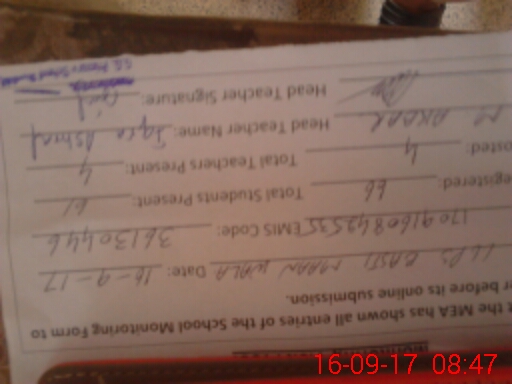 t the MEA has shown all entries of the School Monitoring Form to
r before its online submission.
BASTI MAAN WALA Date: 16-9-17
EMIS Code: 36130446
egistered: 66 Total Students Present: 61
osted: 4 Total Teachers Present: 4
M. AKBAR Head Teacher Name: Iqra Ashraf
Head Teacher Signature:
16-09-17 08:47